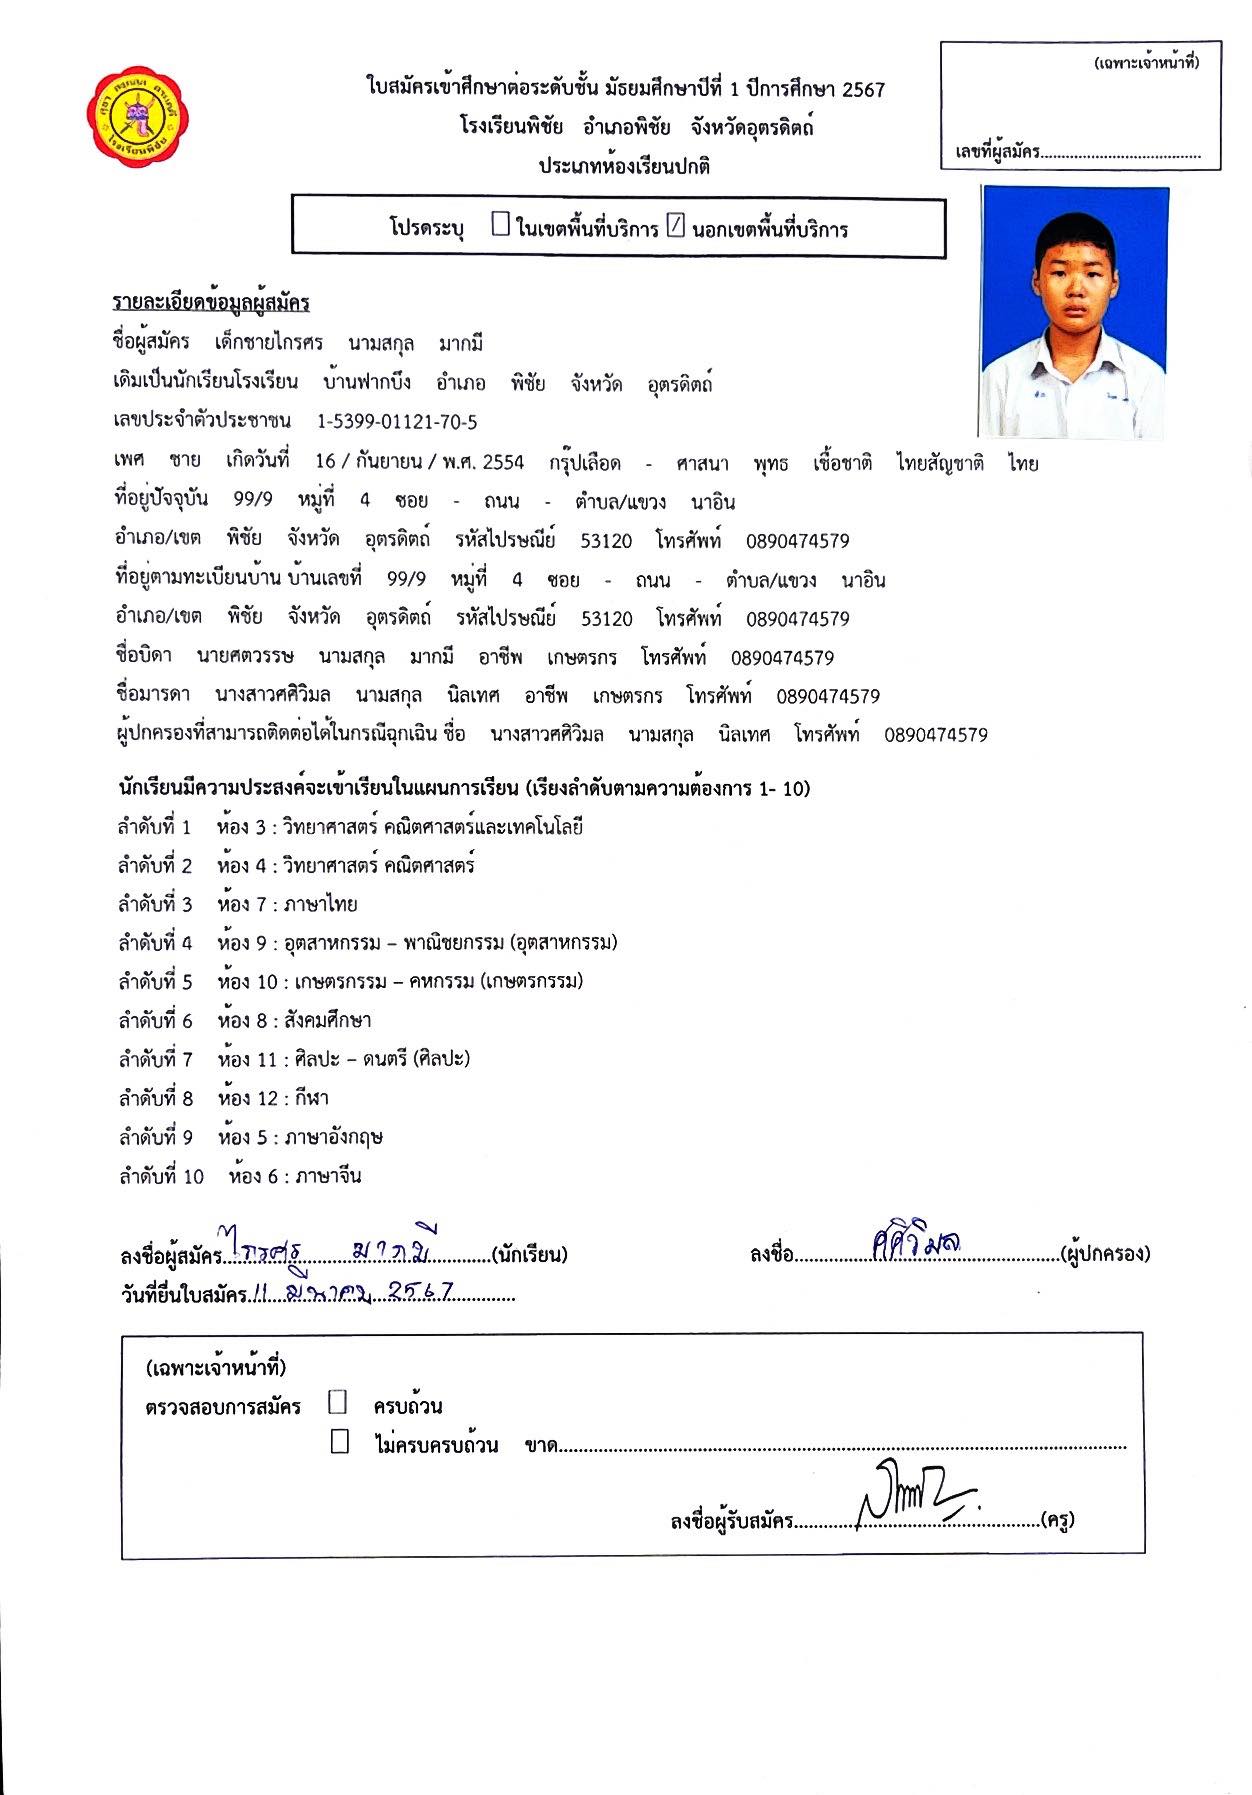 (เฉพาะเจ้าหน้าที่)
เลขที่ผู้สมัคร......................................
ใบสมัครเข้าศึกษาต่อระดับชั้น มัธยมศึกษาปีที่ 1 ปีการศึกษา 2567
โรงเรียนพิชัย อำเภอพิชัย จังหวัดอุตรดิตถ์
ประเภทห้องเรียนปกติ
โรงเรียนพิชัย
โปรดระบุ ☐ ในเขตพื้นที่บริการ ☑ นอกเขตพื้นที่บริการ
รายละเอียดข้อมูลผู้สมัคร
ชื่อผู้สมัคร เด็กชายไกรศร นามสกุล มากมี
เดิมเป็นนักเรียนโรงเรียน บ้านฟากบึง อำเภอ พิชัย จังหวัด อุตรดิตถ์
เลขประจำตัวประชาชน 1-5399-01121-70-5
เพศ ชาย เกิดวันที่ 16 / กันยายน / พ.ศ. 2554 กรุ๊ปเลือด - ศาสนา พุทธ เชื้อชาติ ไทยสัญชาติ ไทย
ที่อยู่ปัจจุบัน 99/9 หมู่ที่ 4 ซอย - ถนน - ตำบล/แขวง นาอิน
อำเภอ/เขต พิชัย จังหวัด อุตรดิตถ์ รหัสไปรษณีย์ 53120 โทรศัพท์ 0890474579
ที่อยู่ตามทะเบียนบ้าน บ้านเลขที่ 99/9 หมู่ที่ 4 ซอย - ถนน - ตำบล/แขวง นาอิน
อำเภอ/เขต พิชัย จังหวัด อุตรดิตถ์ รหัสไปรษณีย์ 53120 โทรศัพท์ 0890474579
ชื่อบิดา นายศตวรรษ นามสกุล มากมี อาชีพ เกษตรกร โทรศัพท์ 0890474579
ชื่อมารดา นางสาวศศิวิมล นามสกุล นิลเทศ อาชีพ เกษตรกร โทรศัพท์ 0890474579
ผู้ปกครองที่สามารถติดต่อได้ในกรณีฉุกเฉิน ชื่อ นางสาวศศิวิมล นามสกุล นิลเทศ โทรศัพท์ 0890474579
นักเรียนมีความประสงค์จะเข้าเรียนในแผนการเรียน (เรียงลำดับตามความต้องการ 1- 10)
ลำดับที่ 1 ห้อง 3 : วิทยาศาสตร์ คณิตศาสตร์และเทคโนโลยี
ลำดับที่ 2 ห้อง 4 : วิทยาศาสตร์ คณิตศาสตร์
ลำดับที่ 3 ห้อง 7 : ภาษาไทย
ลำดับที่ 4 ห้อง 9 : อุตสาหกรรม – พาณิชยกรรม (อุตสาหกรรม)
ลำดับที่ 5 ห้อง 10 : เกษตรกรรม – คหกรรม (เกษตรกรรม)
ลำดับที่ 6 ห้อง 8 : สังคมศึกษา
ลำดับที่ 7 ห้อง 11 : ศิลปะ – ดนตรี (ศิลปะ)
ลำดับที่ 8 ห้อง 12 : กีฬา
ลำดับที่ 9 ห้อง 5 : ภาษาอังกฤษ
ลำดับที่ 10 ห้อง 6 : ภาษาจีน
ลงชื่อผู้สมัคร ไกรศร มากมี (นักเรียน) ลงชื่อ ศศิวิมล (ผู้ปกครอง)
วันที่ยื่นใบสมัคร 11 มีนาคม 2567
(เฉพาะเจ้าหน้าที่)
ตรวจสอบการสมัคร ☐ ครบถ้วน
☐ ไม่ครบครบถ้วน ขาด......................................
ลงชื่อผู้รับสมัคร......................................(ครู)